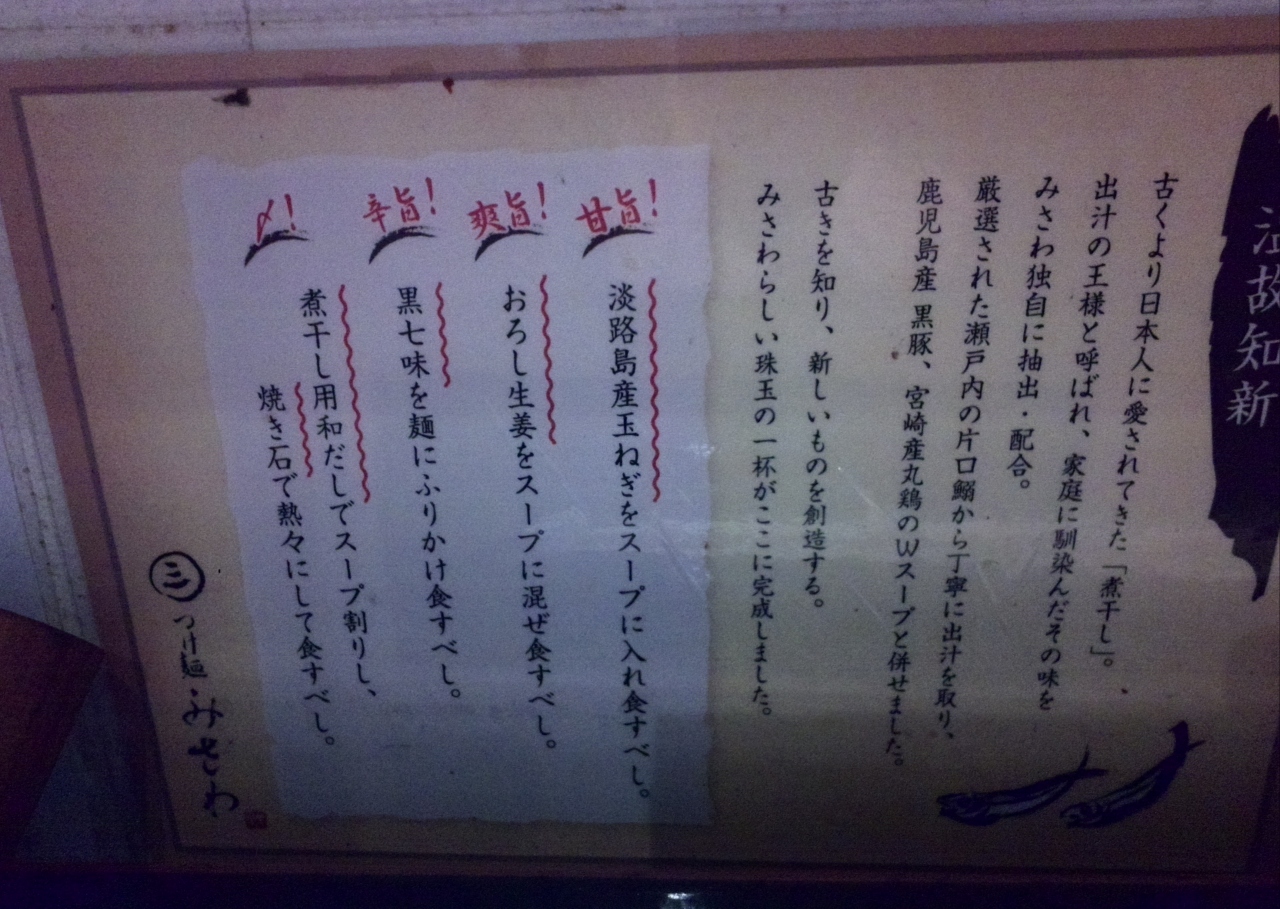 温故知新
古くより日本人に愛されてきた「煮干し」。
出汁の王様と呼ばれ、家庭に馴染んだその味を
みさわ独自に抽出・配合。
厳選された瀬戸内の片口鰯から丁寧に出汁を取り、
鹿児島産 黒豚、宮崎産丸鶏のWスープと併せました。
古きを知り、新しいものを創造する。
みさわらしい珠玉の一杯がここに完成しました。
甘旨!
淡路島産玉ねぎをスープに入れ食すべし。
爽旨!
おろし生姜をスープに混ぜ食すべし。
辛旨!
黒七味を麺にふりかけ食すべし。
〆!
煮干し用和だしでスープ割りし、
焼き石で熱々にして食すべし。
三 つけ麺 みさわ